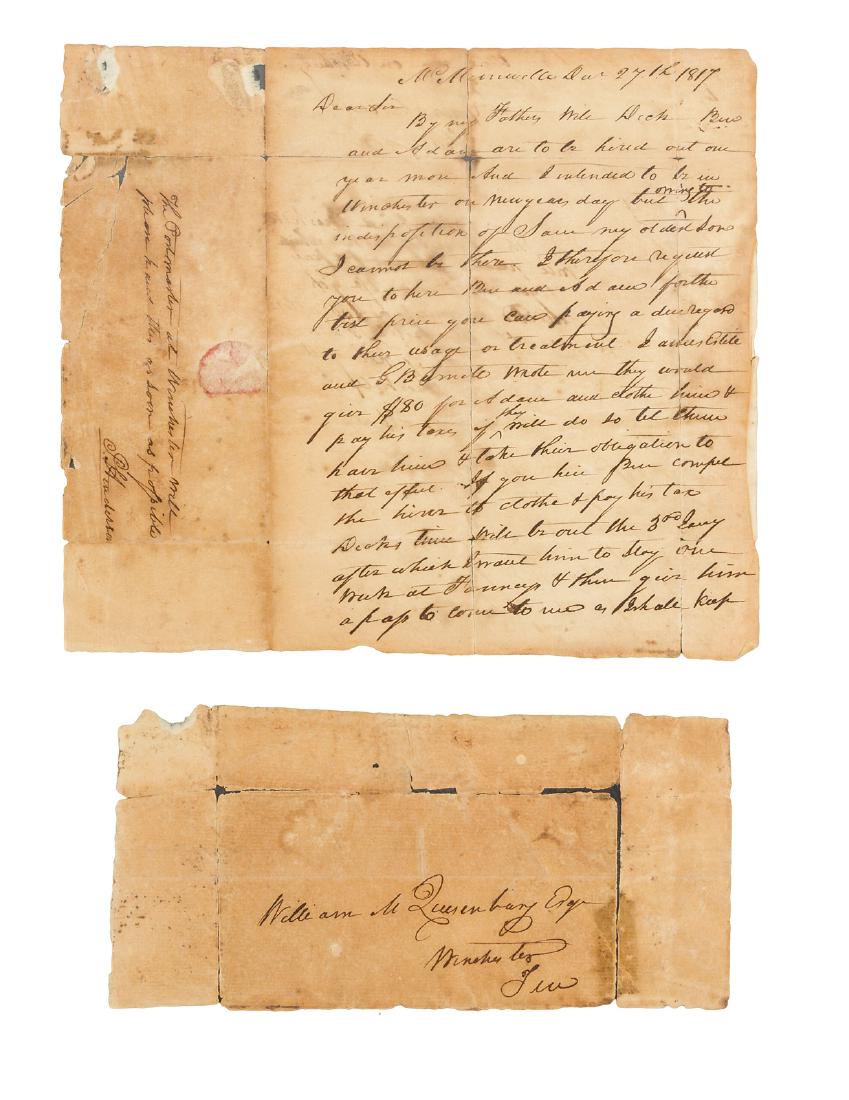 McMinnville Dec 27th 1817
Dear Sir
By my Fathers Will Dick Ben
and Adam are to be hired out one
year more And I intended to be in
Winchester on newyears day but owing to the
indisposition of Sam my oldest Son
I cannot be there I therefore request
you to hire Ben and Adam for the
best price you can paying a due regard
to their usage or treatment James Estile
and G Barnett Wrote me they would
give $80 for Adam and clothe him &
pay his taxes if they Will do so let them
have him & take their obligation to
that effect. If you hire Ben compel
the hirer to clothe & pay his tax
Decks time Will be out the 3rd Jany
after which I want him to stay one
Week at & then give him
a pass to come to me as I shall keep
The Postmaster at Winchester will
please hand this as soon as possible
Henderson
William M Quesenbury Esqr
Winchester
Ten